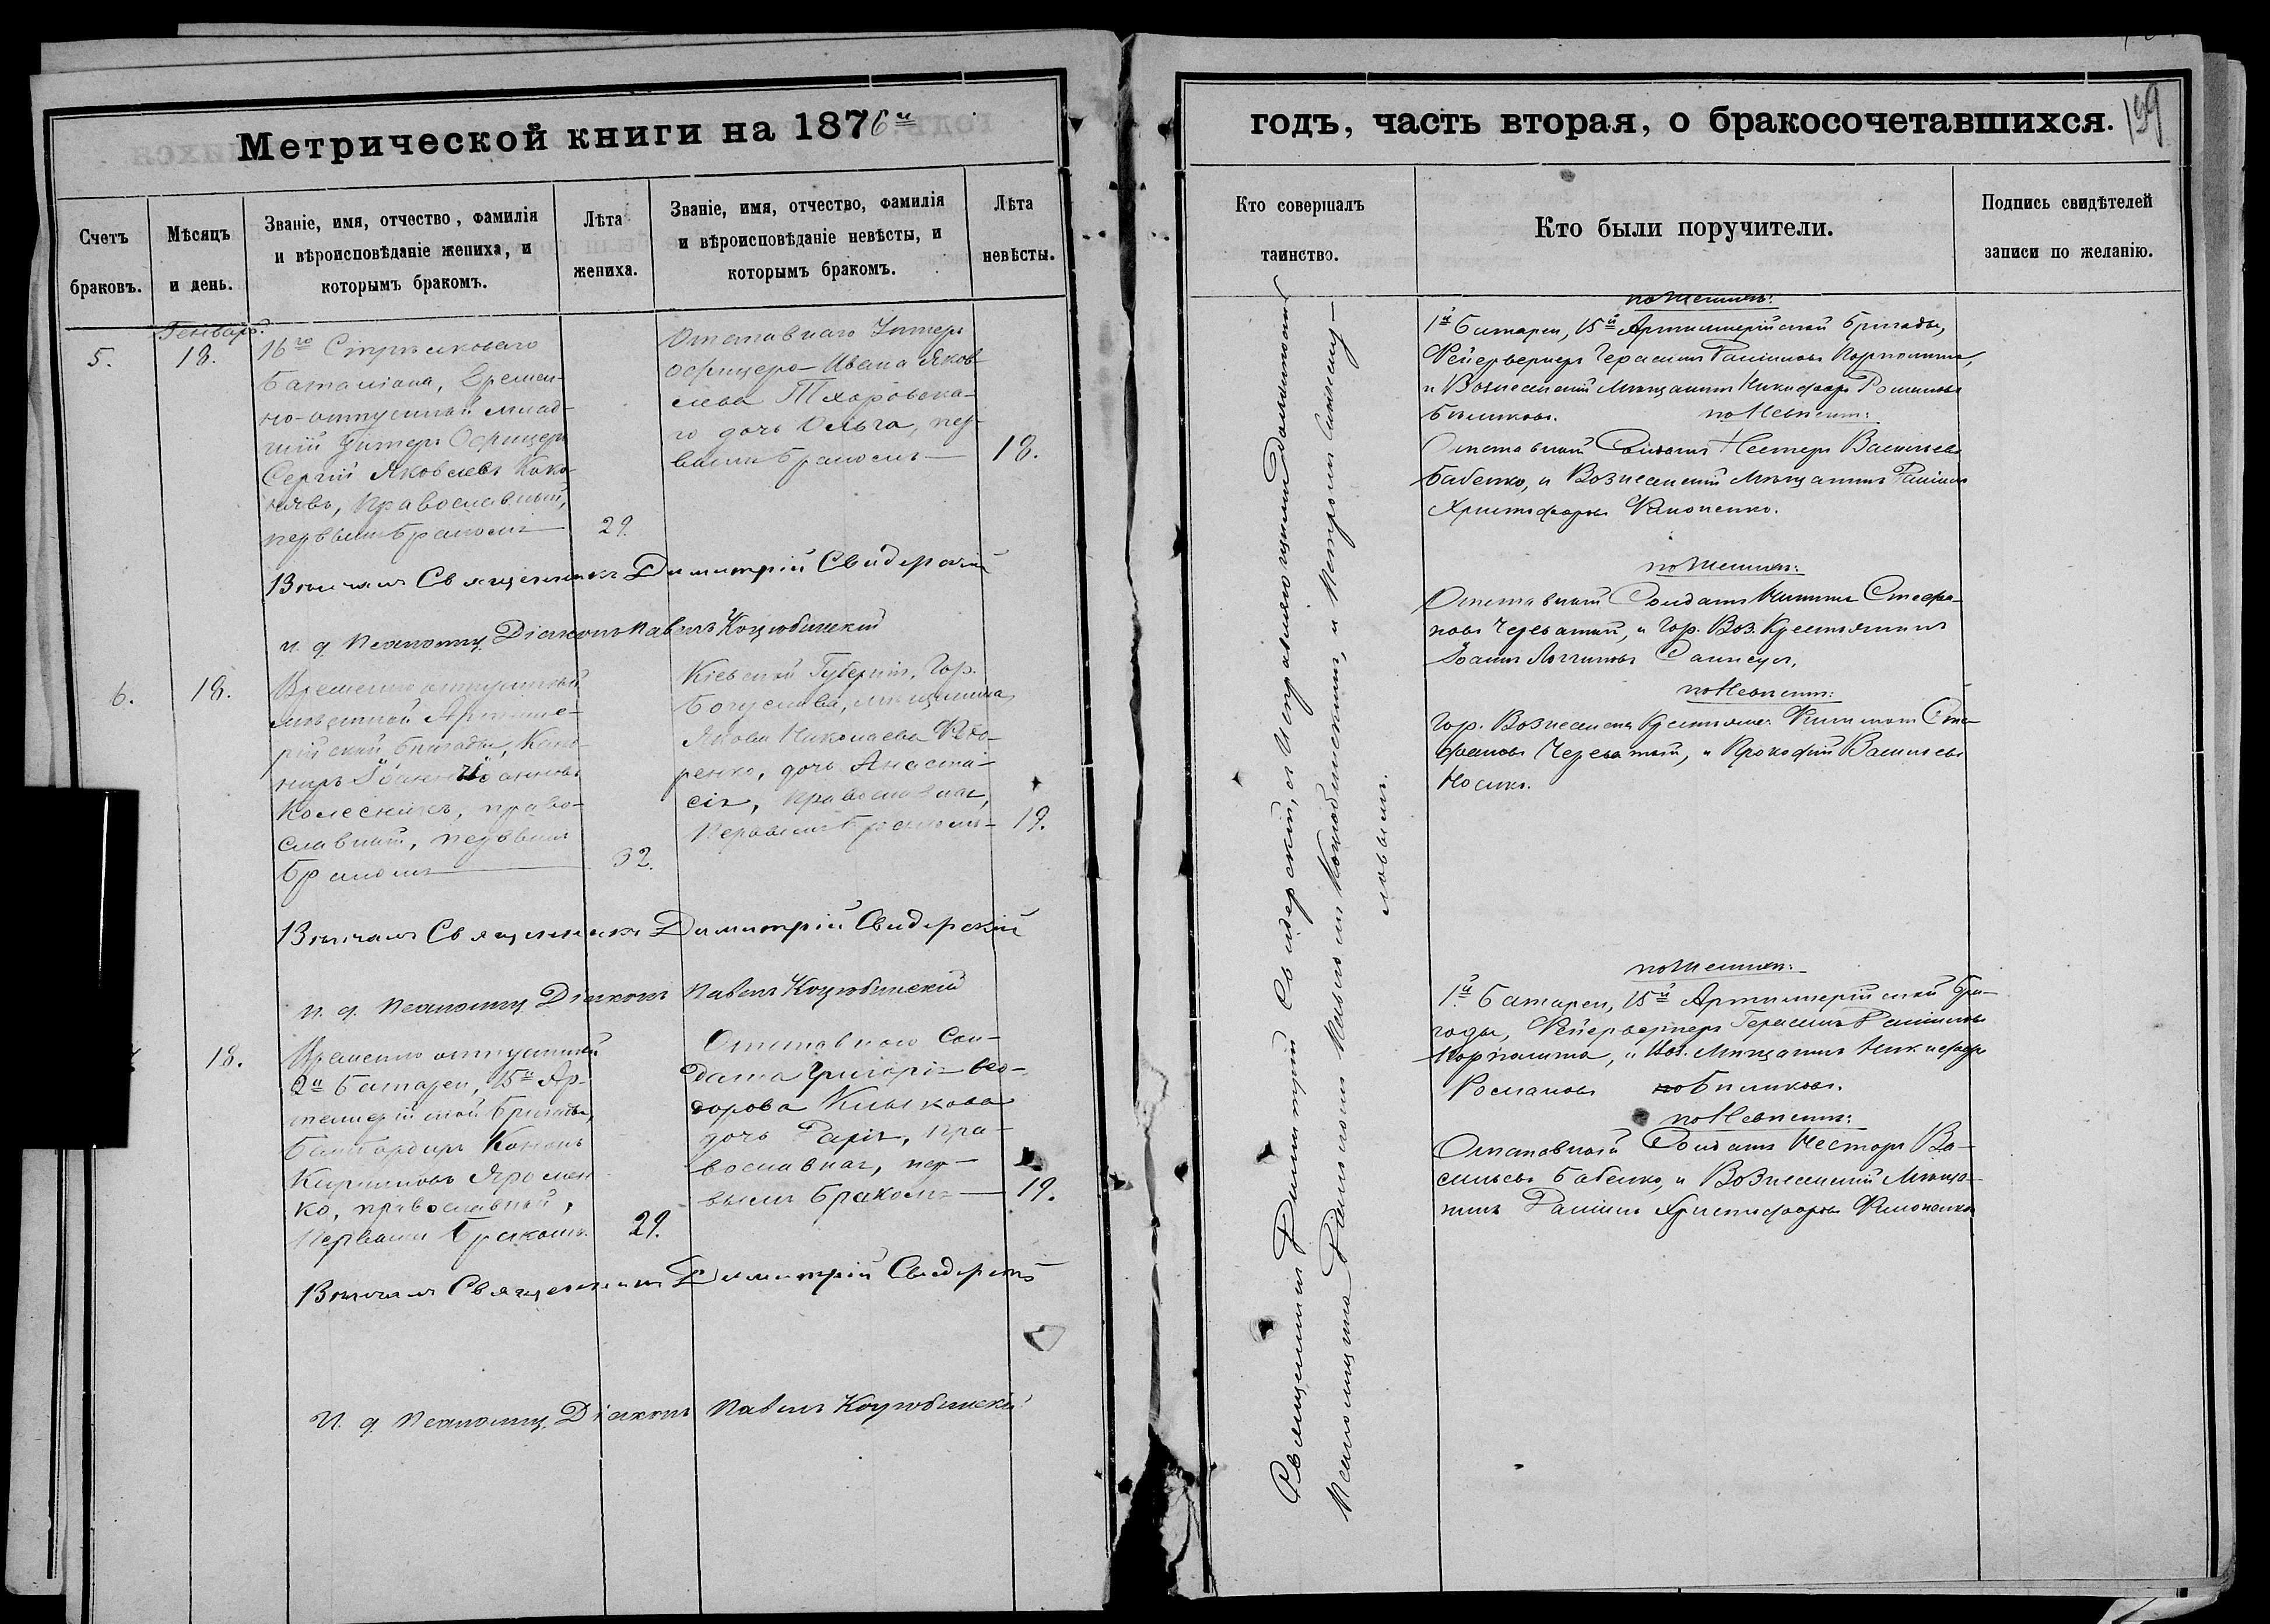 Метрической книги на 1876й
Счетъ браковъ.
Мѣсяцъ и день.
Званіе, имя, отчество, фамилія
и вѣроисповѣданіе жениха, и
которымъ бракомъ.
Лѣта жениха.
Званіе, имя, отчество, фамилія
и вѣроисповѣданіе невѣсты, и
которымъ бракомъ.
Лѣта невѣсты.
Генваря.
5.
18.
16го Стрѣлковаго
Баталіона, Времен-
но-отпускной млад-
шій Унтеръ Офицеръ
Сергій Яковлевъ
православный,
первымъ бракомъ
29.
Отставнаго Унтеръ
Офицера Ивана Яков-
лева
го дочь Ольга, пер-
вымъ бракомъ
18.
Вѣнчалъ Священникъ Димитрій Свидерскій
и. д. Псаломщ. Діаконъ Павелъ Коцюбинскій
6.
18.
Временно отпускной
Артилле-
рійской бригады, Кано-
ниръ Іоаннъ Іоанновъ
Колесникъ, право-
славный, первымъ
бракомъ
32.
Кіевской Губерніи, Гор.
Богуслава, мѣщанина
Якова Николаева Ѳедо-
ренко, дочь Анаста-
сія, православная,
первымъ бракомъ
19.
Вѣнчалъ Священникъ Димитрій Свидерскій
и. д. Псаломщ. Діаконъ Павелъ Коцюбинскій
18.
Временно отпускной
2й Батареи, 15й Ар-
тиллерійской бригады,
Бомбардиръ Кононъ
Кирилловъ Яромен-
ко, православный,
первымъ бракомъ.
29.
Отставного Сол-
дата Григорія Ѳео-
дорова
дочь Дарія, пра-
вославная, пер-
вымъ бракомъ
19.
Вѣнчалъ Священникъ Димитрій Свидерскій
И. д. Псаломщ. Діаконъ Павелъ Коцюбинскій
годъ, часть вторая, о бракосочетавшихся.
159
Кто совершалъ
таинство.
Кто были поручители.
Подпись свидѣтелей
записи по желанію.
Священникъ Димитрій Свидерскій, съ Исправляющимъ должность
Псаломщика Діакономъ Павломъ Коцюбинскимъ, и Петромъ
ловымъ.
по Женихѣ:
1й Батареи, 15й Артиллерійской бригады,
Фейерверкеръ Герасимъ Даніиловъ
и Вознесенскій мѣщанинъ Никифоръ Романовъ
Бѣликовъ. по Невѣстѣ:
Отставный Солдатъ Несторъ Васильевъ
Бабенко, и Вознесенскій мѣщанинъ Даніилъ
Христофоровъ Филоненко.
по Женихѣ:
Отставный Солдатъ Стефа-
новъ Череватый, и Гор. Воз. Крестьянинъ
Іоаннъ Логгиновъ
по Невѣстѣ:
Гор. Вознесенска Крестьяне: Филимонъ Сте-
фановъ Череватый, и Прокофій Васильевъ
Носикъ.
по Женихѣ:
1й Батареи, 15й Артиллерійской бри-
гады, Фейерверкеръ Герасимъ Даніиловъ
и Воз. Мѣщанинъ Никифоръ
Романовъ Бѣликовъ.
по Невѣстѣ:
Отставный Солдатъ Несторъ Ва-
сильевъ Бабенко, и Вознесенскій Мѣща-
нинъ Даніилъ Христофоровъ Филоненко